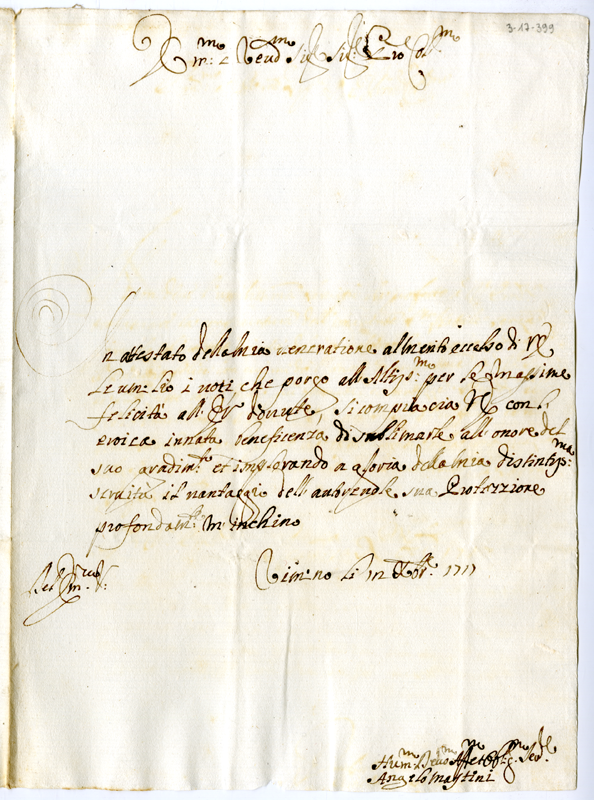 3-17-399
Em.mo e Reud.mo Sig.r Sig.r e Pro Col.mo
In attestato della Mia veneratione al merito eccelso di V.E.
le um: lio i uoti che porgo all'Altiss.mo per le Massime
felicità all' E.V. douute. Si compiaccia V.E. con l
eroica innata beneficenza di sublimarle all onore del
suo gradim.to et implorando a gloria della Mia distintiss.ma
seruitù il uantaggio dell' autreuole sua Protezzione
profondam.te m'inchino
Rimino li 12 Xbr.e 1717
Hum.mo Deuo.mo Obl.mo Ser.
Angelo Martini